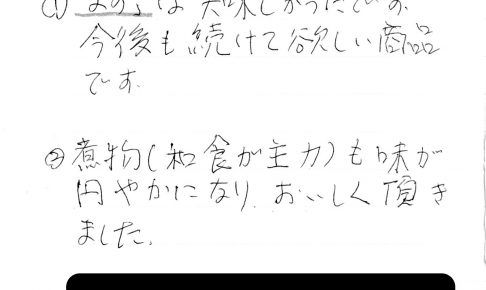 は美味しかったです。
今後も続けて欲しい商品
です。
②煮物(和食が主力)も味が
円やかになり、おいしく頂き
ました。